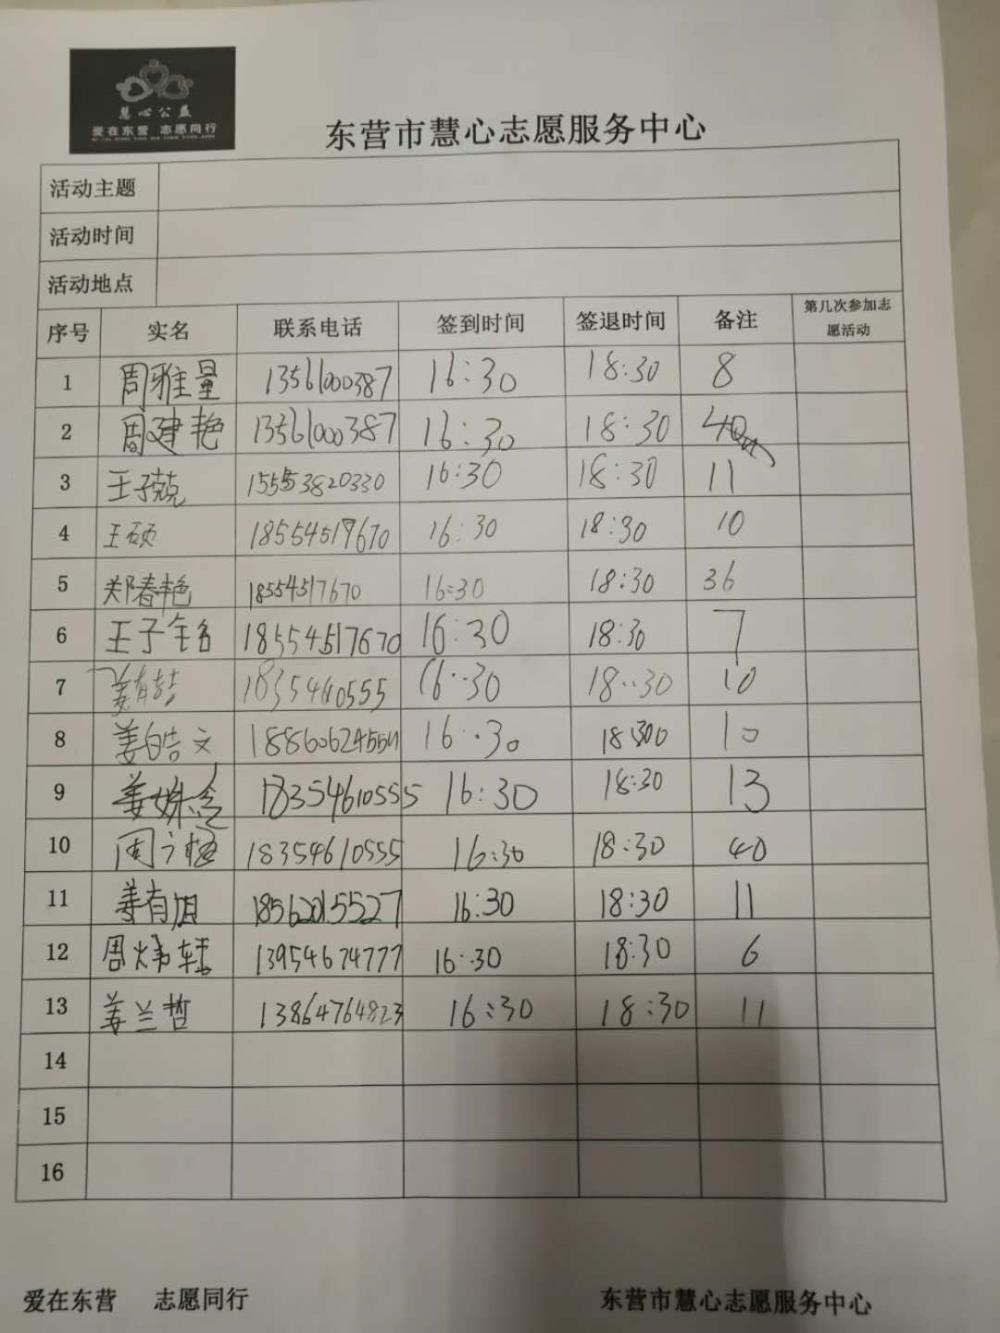 慧心公益
爱在东营 志愿同行
东营市慧心志愿服务中心
活动主题
活动时间
活动地点
序号 实名 联系电话 签到时间 签退时间 备注 第几次参加志愿活动
1 周雅量 13561000387 16:30 18:30 8
2 周建艳 13561000387 16:30 18:30 40
3 王子兢 15553820330 16:30 18:30 11
4 王硕 18554517670 16:30 18:30 10
5 郑春艳 18554517670 16:30 18:30 36
6 王子铭 18554517670 16:30 18:30 7
7 姜有喆 1835460555 16:30 18:30 10
8 姜皓文 16:30 10
9 18354610555 16:30 18:30 13
10 周 18354610555 16:30 18:30 40
11 姜有旭 18562015527 16:30 18:30 11
12 周炜轩 13954674777 16:30 18:30 6
13 姜兰哲 13864764823 16:30 18:30 11
14
15
16
爱在东营 志愿同行 东营市慧心志愿服务中心